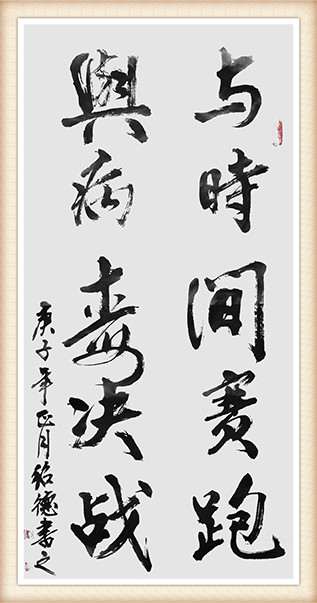 与時间赛跑
與病毒决战
庚子年正月绍德書之